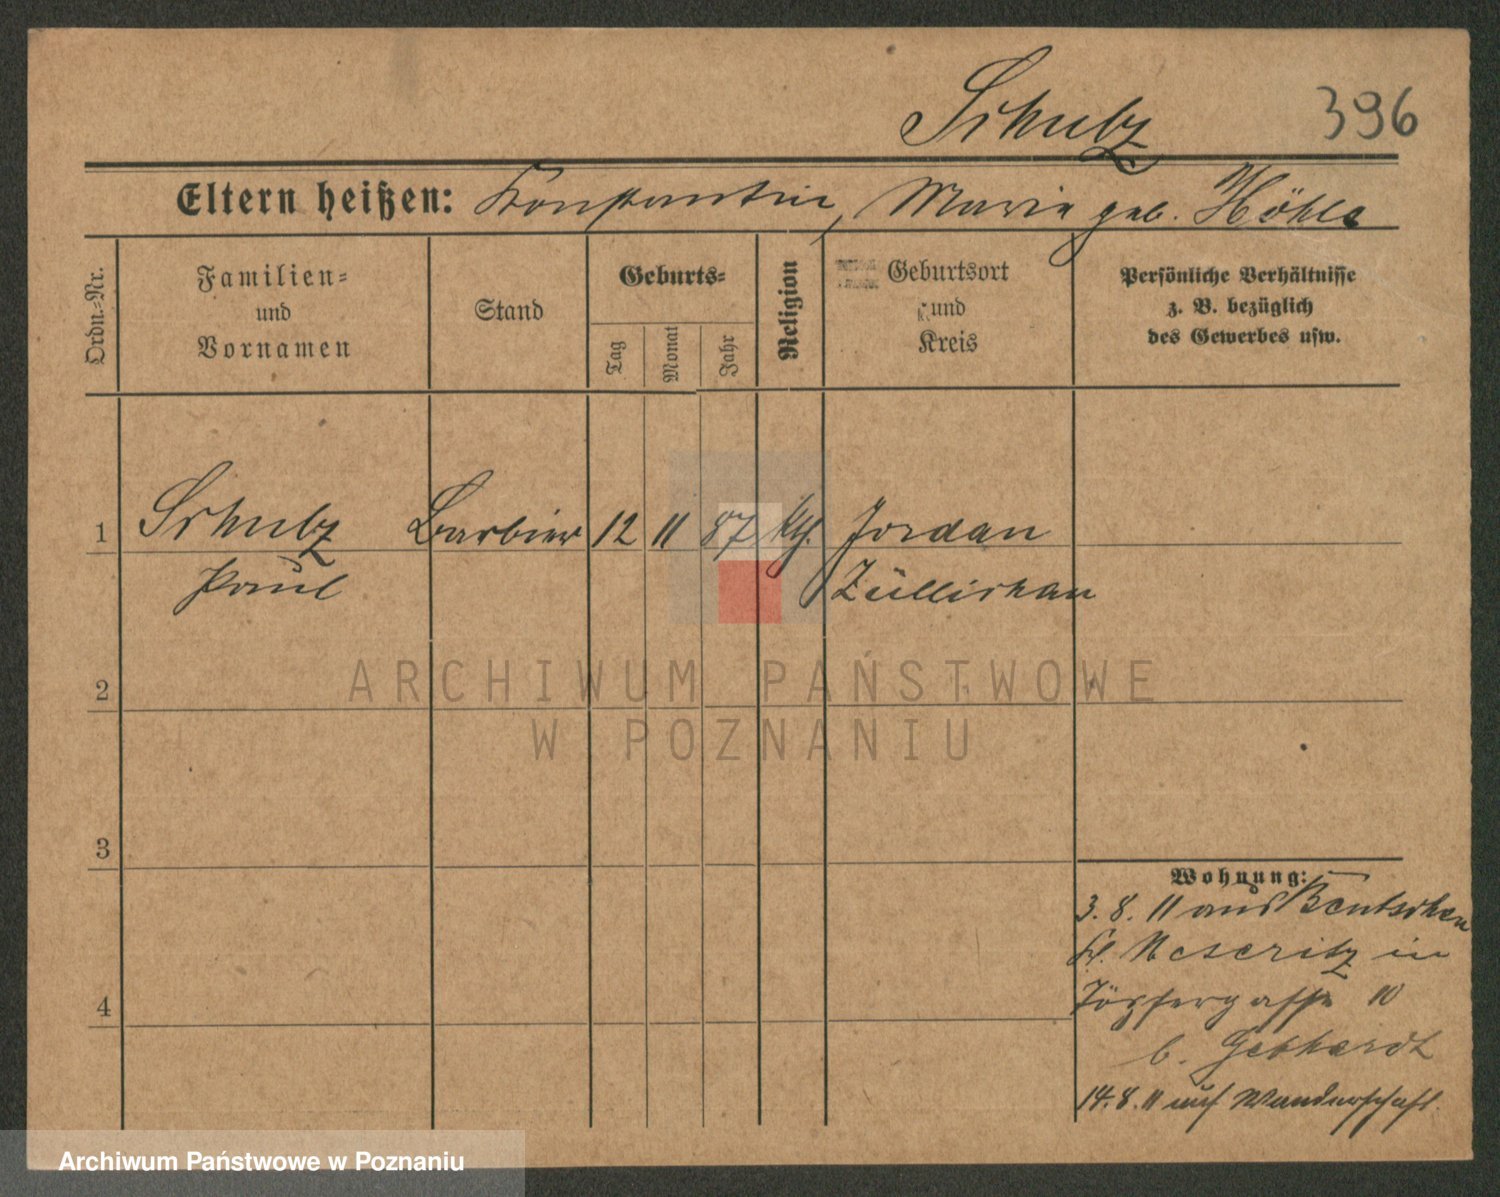 Schulz
396
Eltern heißen: Konstantin, Marie geb. Höhle
Ordn.-Nr.
Familien-
und
Vornamen
Stand
Geburts-
Tag
Monat
Jahr
Religion
Geburtsort
und
Kreis
Persönliche Verhältnisse
z. B. bezüglich
des Gewerbes usw.
1 Schulz Barbier 12 11 87 kth. Jordan
Paul Züllichau
2
ARCHIWUM PAŃSTWOWE
W POZNANIU
3
Wohnung:
3.8.11 aus Bentschen
Kr. Meseritz in
4 Töpfergasse 10
b. Gebhardt
14.8.11 auf Wanderschaft.
Archiwum Państwowe w Poznaniu